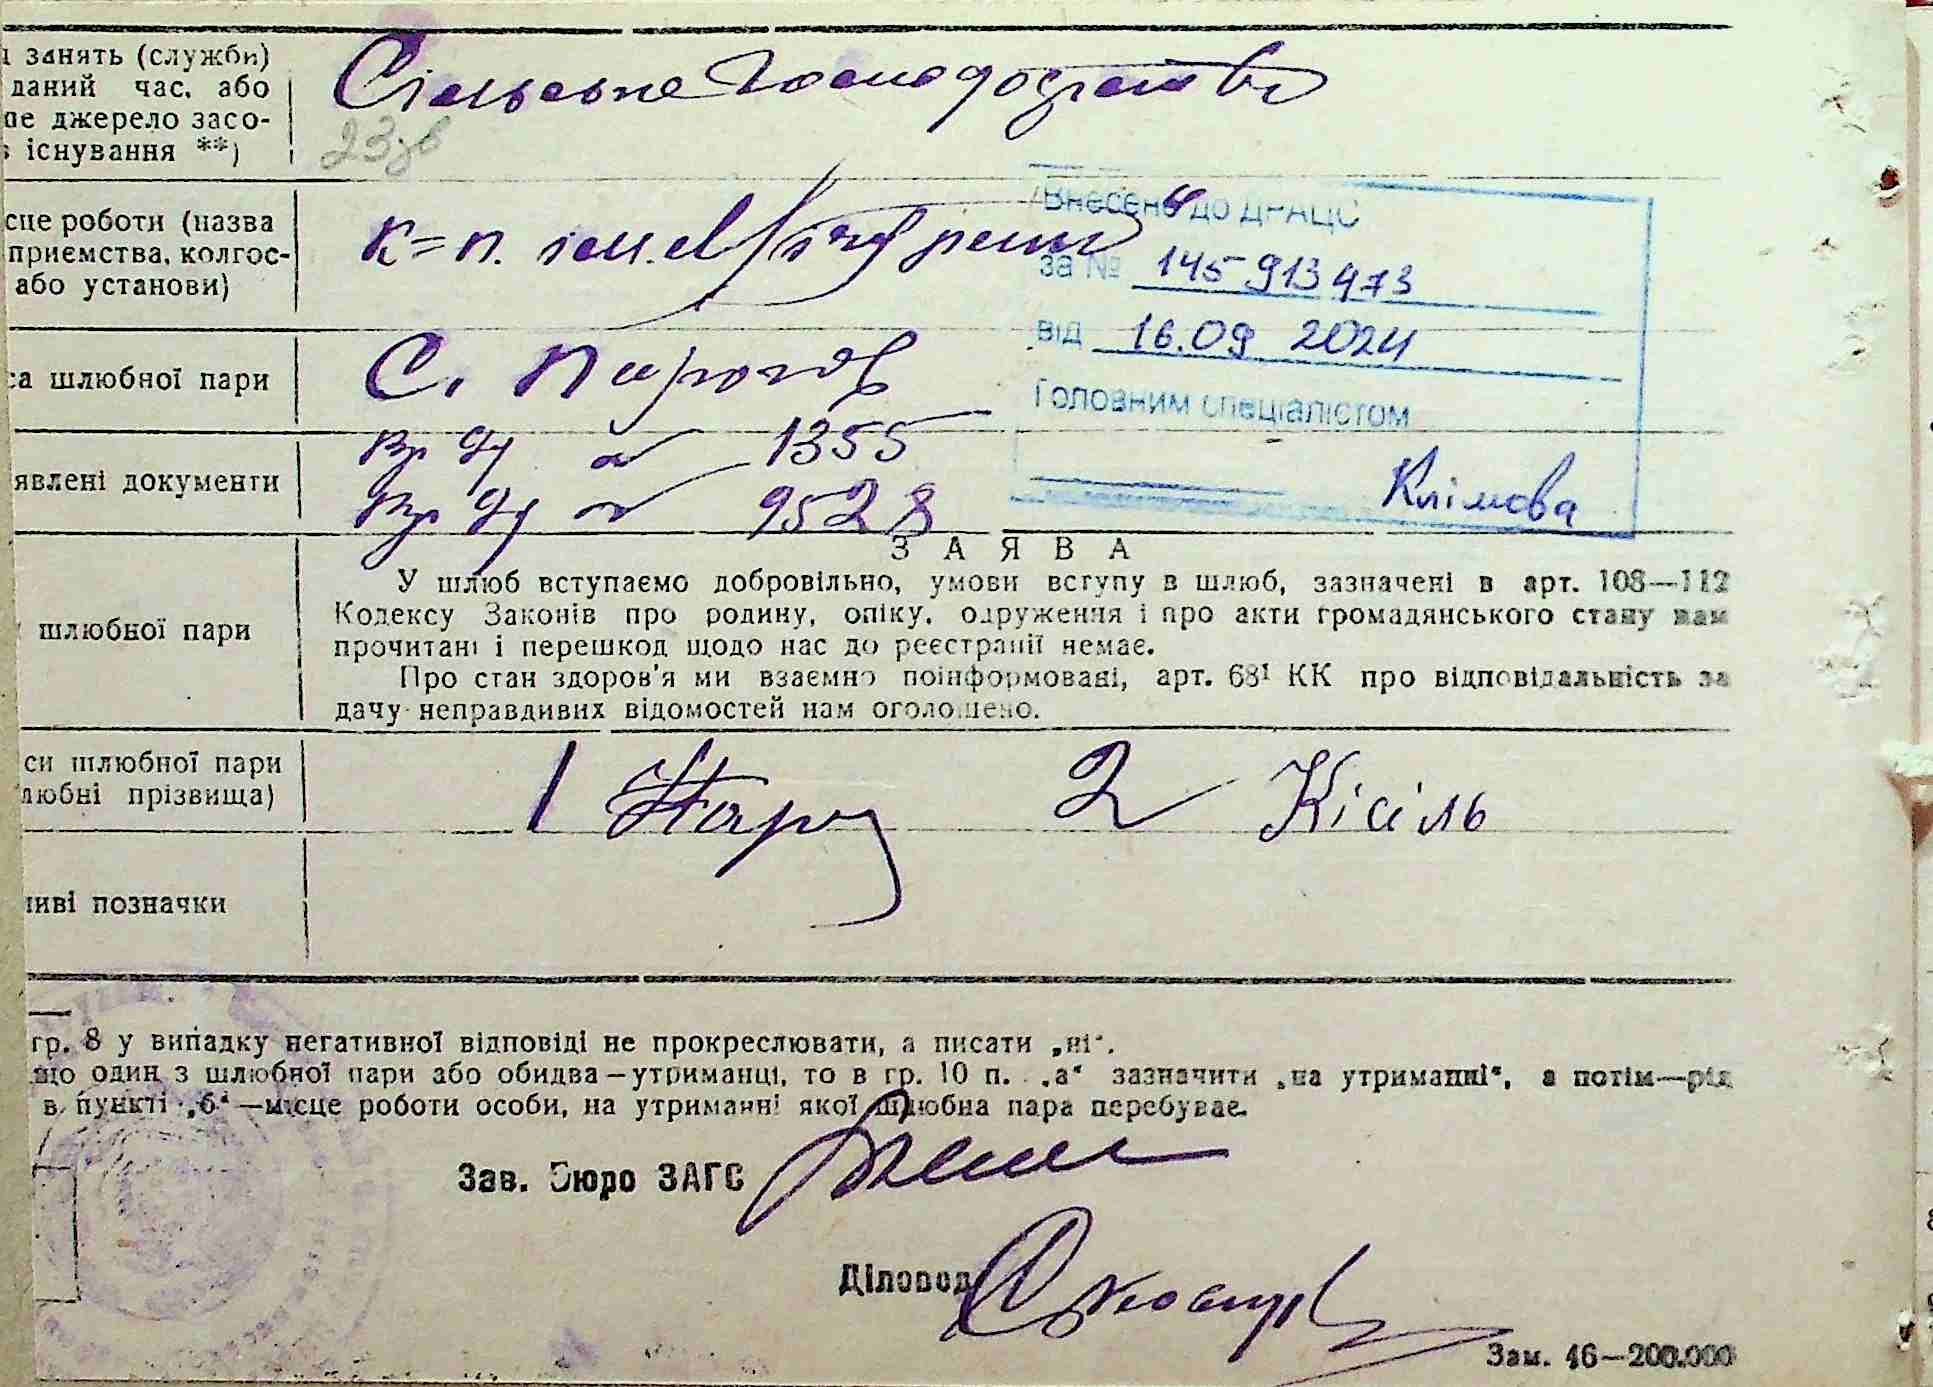 занять (служби)
даний час, або
джерело засо-
існування **)
Сільське Господарство
23
сце роботи (назва
приємства, колгос-
або установи)
к=п. ім.
Внесено до ДРАЦС
за № 145 913 473
від 16.09 2024
Головним спеціалістом
Клімова
са шлюбної пари
С. Пирогов
явлені документи
№ 1355
№ 9528
ЗАЯВА
шлюбної пари
У шлюб вступаємо добровільно, умови вступу в шлюб, зазначені в арт. 108—112
Кодексу Законів про родину, опіку, одруження і про акти громадянського стану нам
прочитані і перешкод щодо нас до реєстрації немає.
Про стан здоров'я ми взаємно поінформовані, арт. 68¹ КК про відповідальність за
дачу неправдивих відомостей нам оголошено.
си шлюбної пари
любні прізвища)
1 2 Кісіль
ливі позначки
гр. 8 у випадку негативної відповіді не прокреслювати, а писати „ні".
що один з шлюбної пари або обидва—утриманці, то в гр. 10 п. „а" зазначити „на утриманні", а потім—рід
в пункті „б"—місце роботи особи, на утриманні якої шлюбна пара перебуває.
Зав. Бюро ЗАГС
Діловод
Зам. 46—200.000